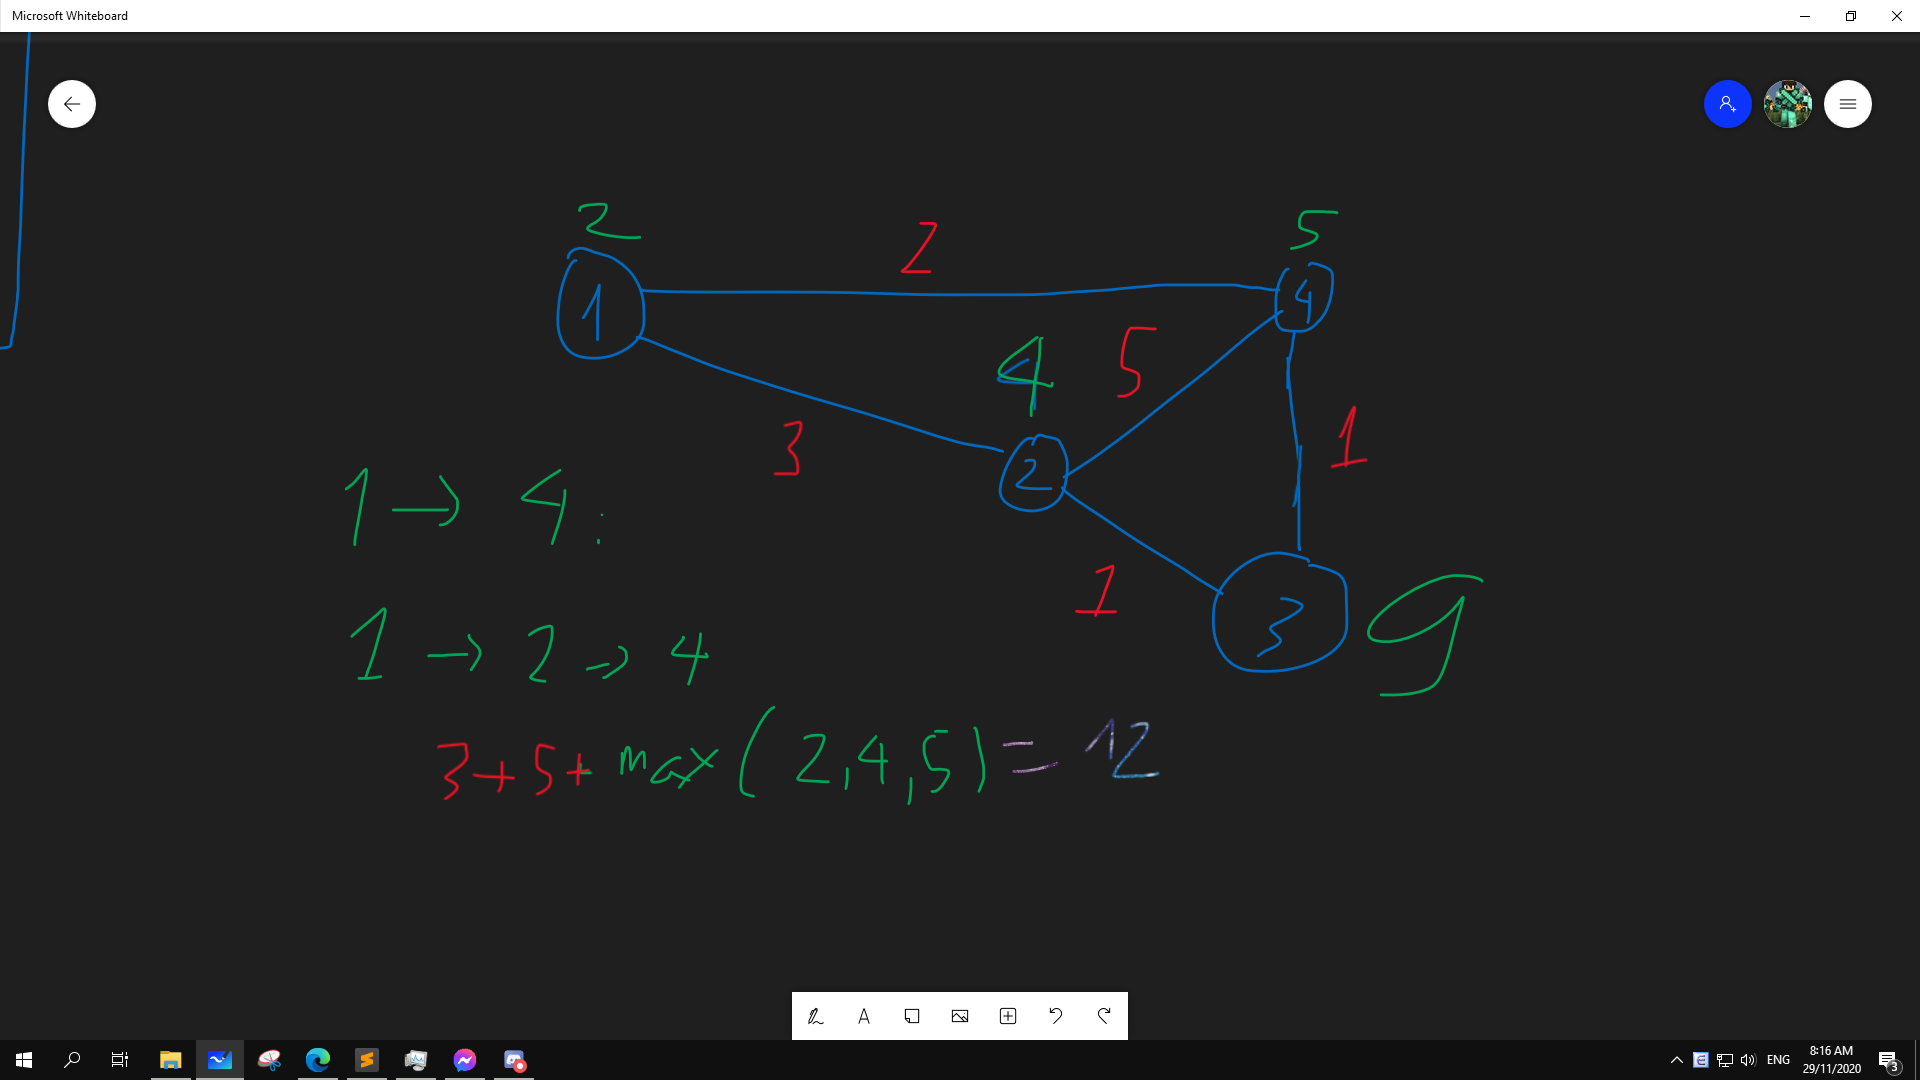 Microsoft Whiteboard
2
2
5
1
4
4
5
3
2
1
1
3
9
1 → 4 :
1 → 2 → 4
3+5+ max (2,4,5) = 12
ENG
8:16 AM
29/11/2020
3